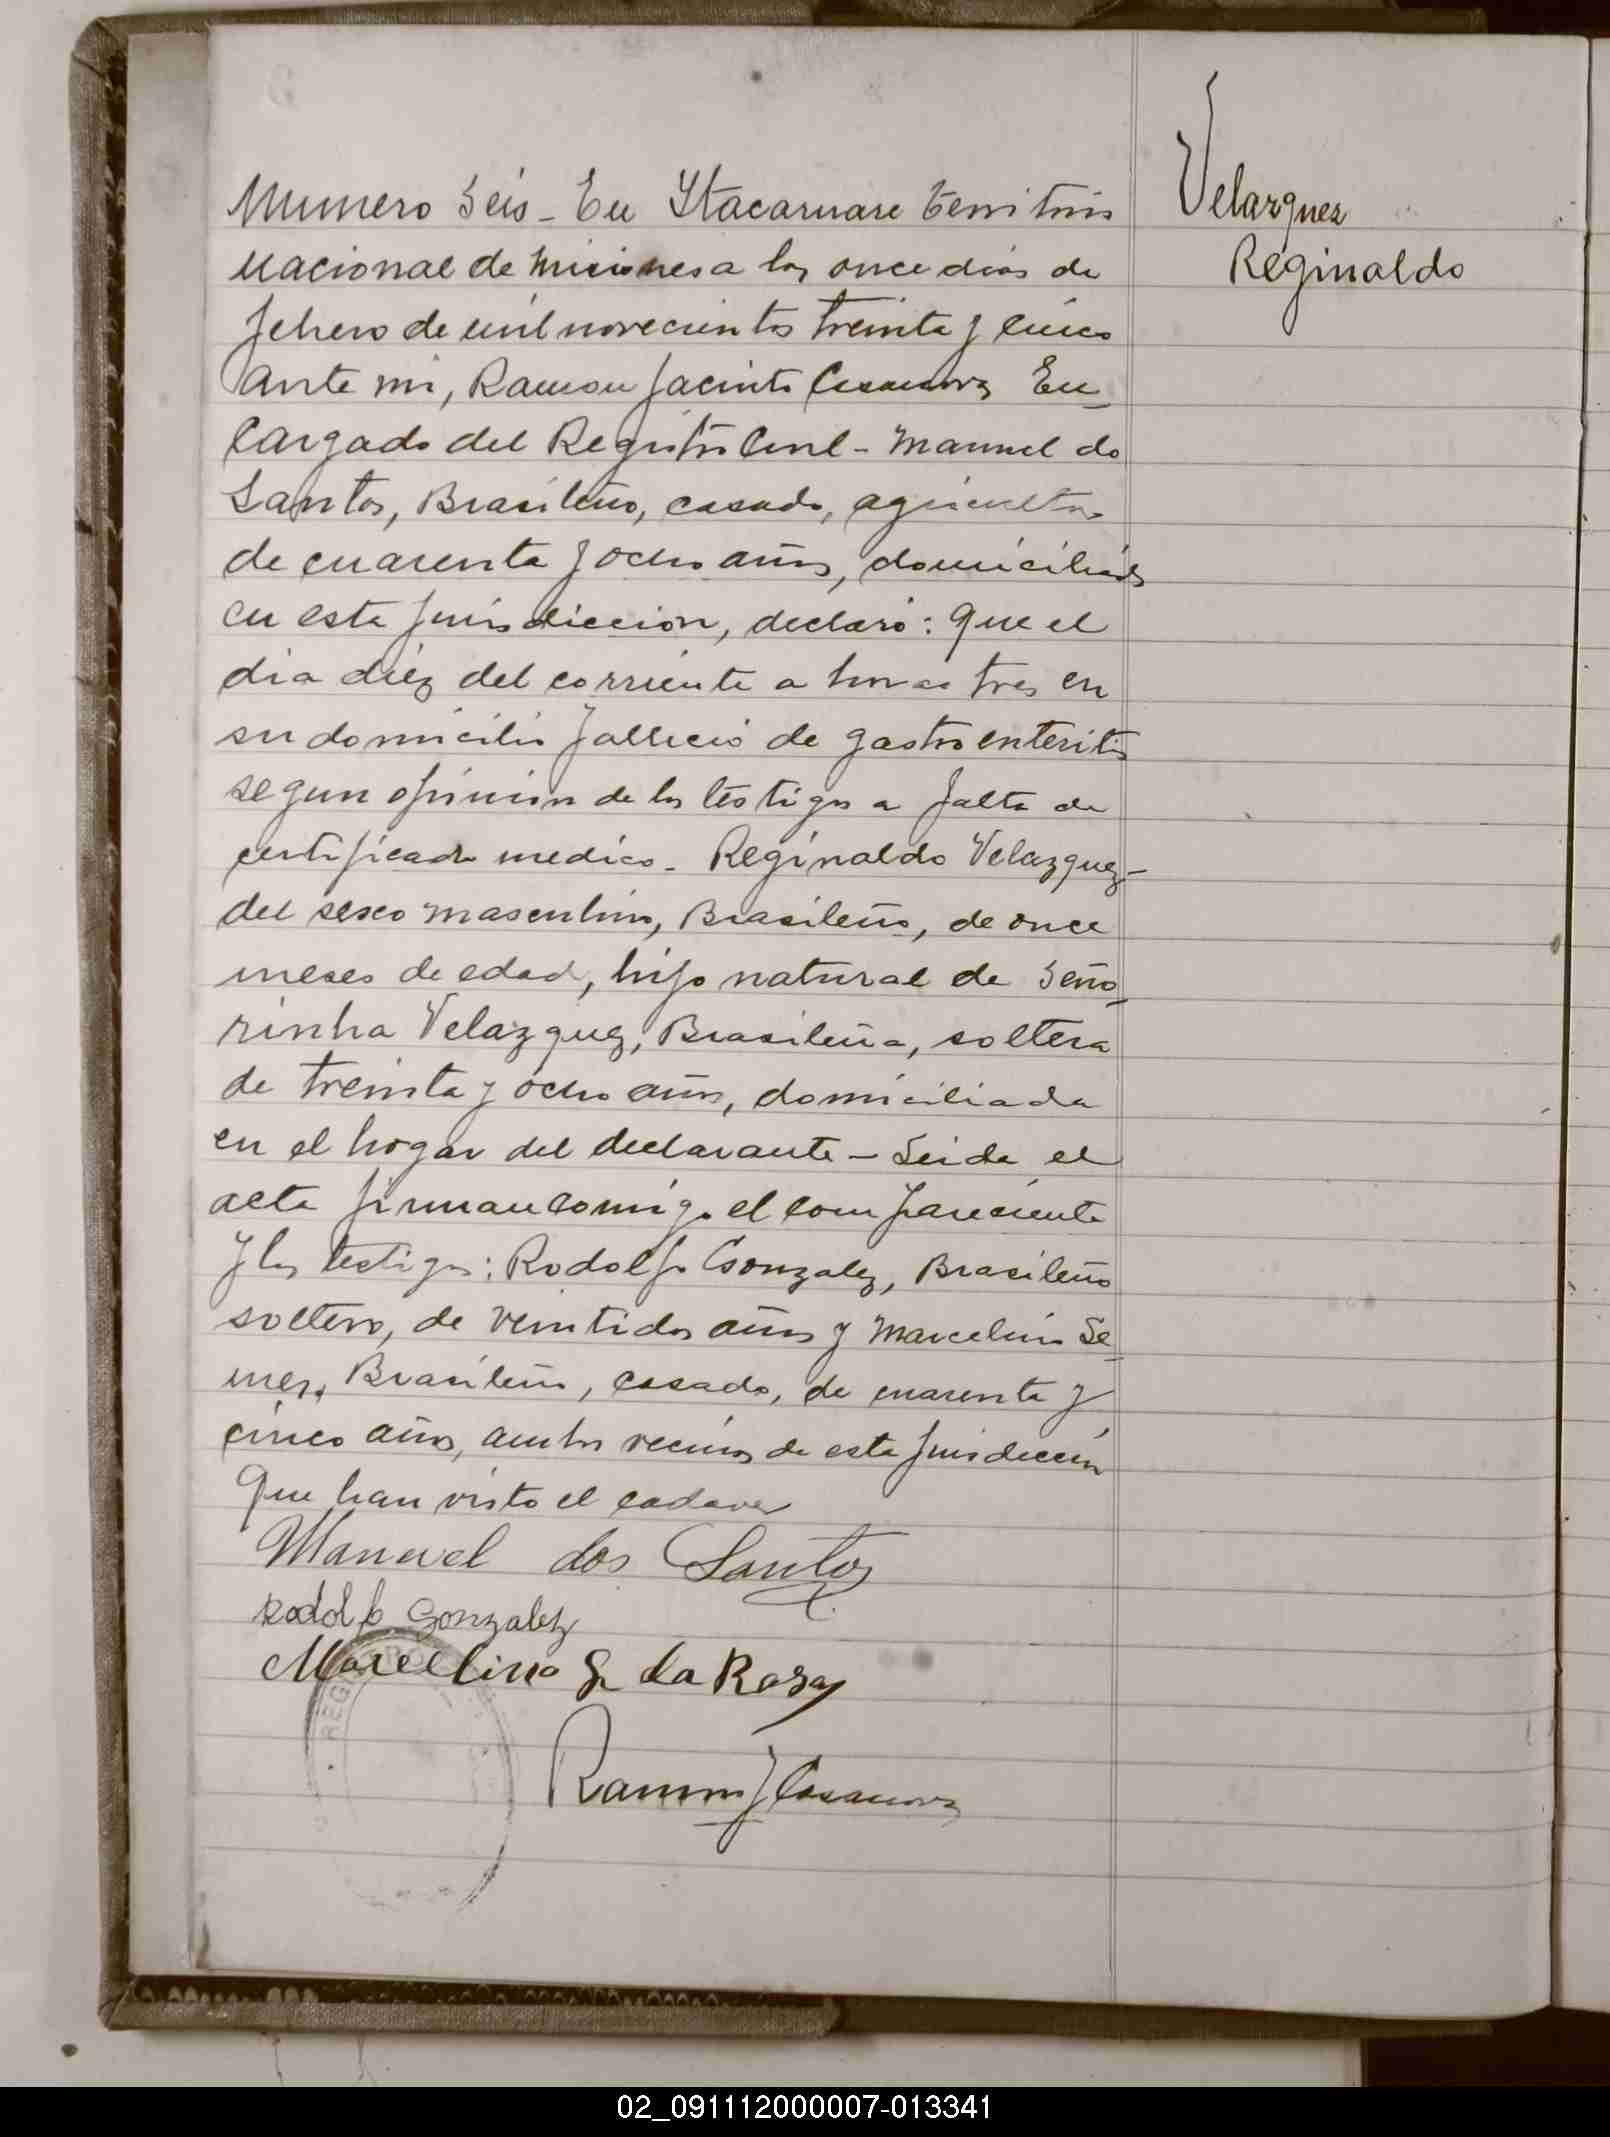 Numero Seis - En Ytacaruare Territorio
Nacional de Misiones a los once dias de
febrero de mil novecientos treinta y cinco
ante mi, Ramon Jacinto Casanova En-
cargado del Registro Civil - Manuel do
Santos, Brasileño, casado, agricultor
de cuarenta y ocho años, domiciliado
en esta jurisdiccion, declaró: Que el
dia diez del corriente a horas tres en
su domicilio fallecio de gastro enteritis
segun opinion de los testigos a falta de
certificado medico - Reginaldo Velazquez -
del sexo masculino, Brasileño, de once
meses de edad, hijo natural de Seño-
rinha Velazquez, Brasileña, soltera
de treinta y ocho años, domiciliada
en el hogar del declarante - Leida el
acta firman comigo el compareciente
y los testigos: Rodolfo Gonzalez, Brasileño
soltero, de veintidos años y Marcelino Se-
mer, Brasileño, casado, de cuarenta y
cinco años, ambos vecinos de esta jurisdiccion
que han visto el cadaver
Manuel dos Santos
Rodolfo Gonzalez
Marcellino S. da Rosa
Ramon J Casanova
REGISTRO
Velazquez
Reginaldo
02_091112000007-013341